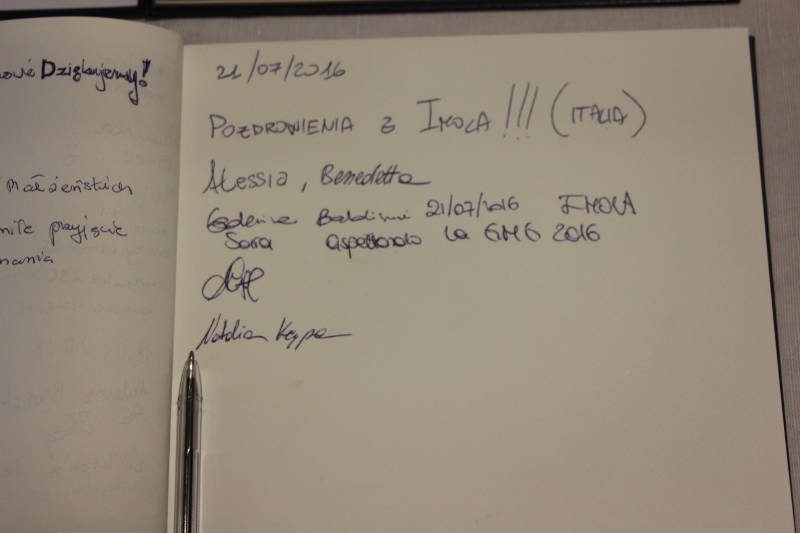 Dziękujemy!
małżeńskich
miłe przyjęcie
21/07/2016
POZDROWIENIA z IMOLA!!! (ITALIA)
Alessia, Benedetta
Baldinni 21/07/2016 IMOLA
Sara aspettando la GMG 2016
Natalia Keppa